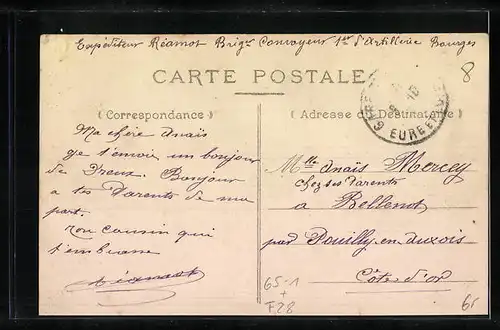 Expéditeur Réamot Brigr Convoyeur 1er d'Artillerie Bourges
8
CARTE POSTALE
(Correspondance)
(Adresse du Destinataire)
EURE ET
Ma chère Anaïs
je t'envoie un bonjour
de Dreux. Bonjour
a tes Parents de ma
part.
ton cousin qui
t'embrasse
Réamot
Mlle Anaïs Mercey
chez ses Parents
a Bellenot
par Pouilly-en-Auxois
Côte d'or
65-1
+
F28